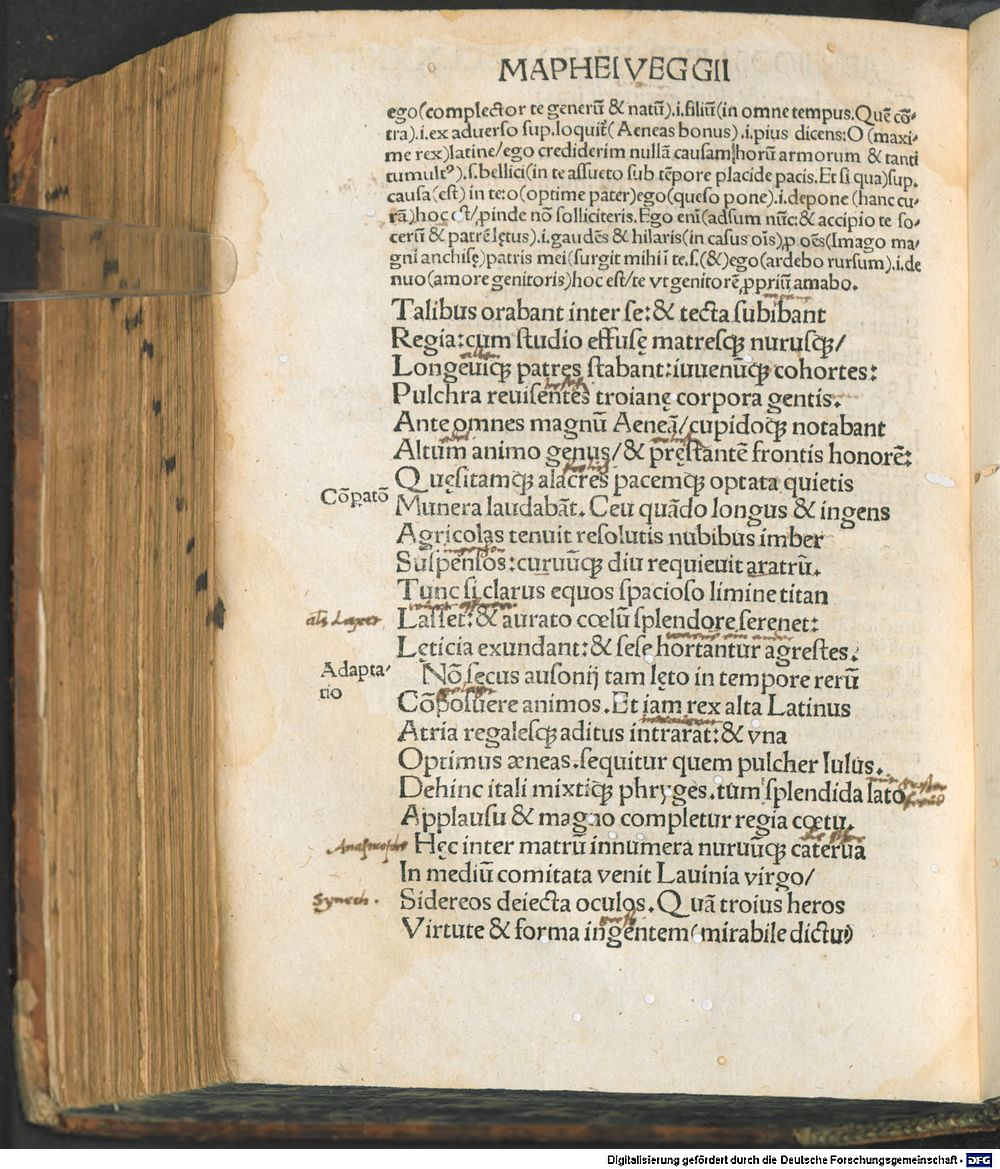 MAPHEI VEGGII
ego(complector te generū & natū).i.filiū(in omne tempus.Quē cō-
tra).i.ex aduerso sup.loquit᷑(Aeneas bonus).i.pius dicens:O(maxi-
me rex)latine/ego crediderim nullā causam horū armorum & tanti
tumultꝰ).s.bellici(in te assueto sub tēpore placide pacis.Et si qua)sup.
causa(est) in te:o(optime pater)ego(queso pone).i.depone (hanc cu-
rā)hoc est/ꝓinde nō solliciteris.Ego eni(adsum nūc:& accipio te so-
cerū & patrē lętus).i.gaudēs & hilaris(in casus oīs)ꝑ oēs(Imago ma-
gni anchisę)patris mei(surgit mihi ī te.s.(&)ego(ardebo rursum).i.de
nuo(amore genitoris)hoc est/te vt genitorē ꝓpriū amabo.
Talibus orabant inter se:& tecta subibant
Regia:cum studio effusę matresqꝫ nurusqꝫ/
Longeuiqꝫ patres stabant:iuuenūqꝫ cohortes:
Pulchra reuisentes troianę corpora gentis.
Ante omnes magnū Aeneā/cupidoqꝫ notabant
Altum animo genus/& pręstantē frontis honorē:
Quęsitamqꝫ alacres pacemqꝫ optata quietis
Cōpatō
Munera laudabāt.Ceu quādo longus & ingens
Agricolas tenuit resolutis nubibus imber
Suspensos:curuūqꝫ diu requieuit aratrū.
Tunc si clarus equos spacioso limine titan
als
Lasset:& aurato cœlū splendore serenet:
Lęticia exundant:& sese hortantur agrestes.
Adapta-
tio
Nō secus ausonij tam lęto in tempore rerū
Cōposuere animos.Et iam rex alta Latinus
Atria regalesqꝫ aditus intrarat:& vna
Optimus æneas.sequitur quem pulcher Iulus.
Dehinc itali mixtiqꝫ phryges.tum splendida lato
Applausu & magno completur regia cœtu.
Hęc inter matrū innumera nuruūqꝫ caterua
In mediū comitata venit Lauinia virgo/
Synech.
Sidereos deiecta oculos.Quā troius heros
Virtute & forma ingentem(mirabile dictu)
Digitalisierung gefördert durch die Deutsche Forschungsgemeinschaft - DFG